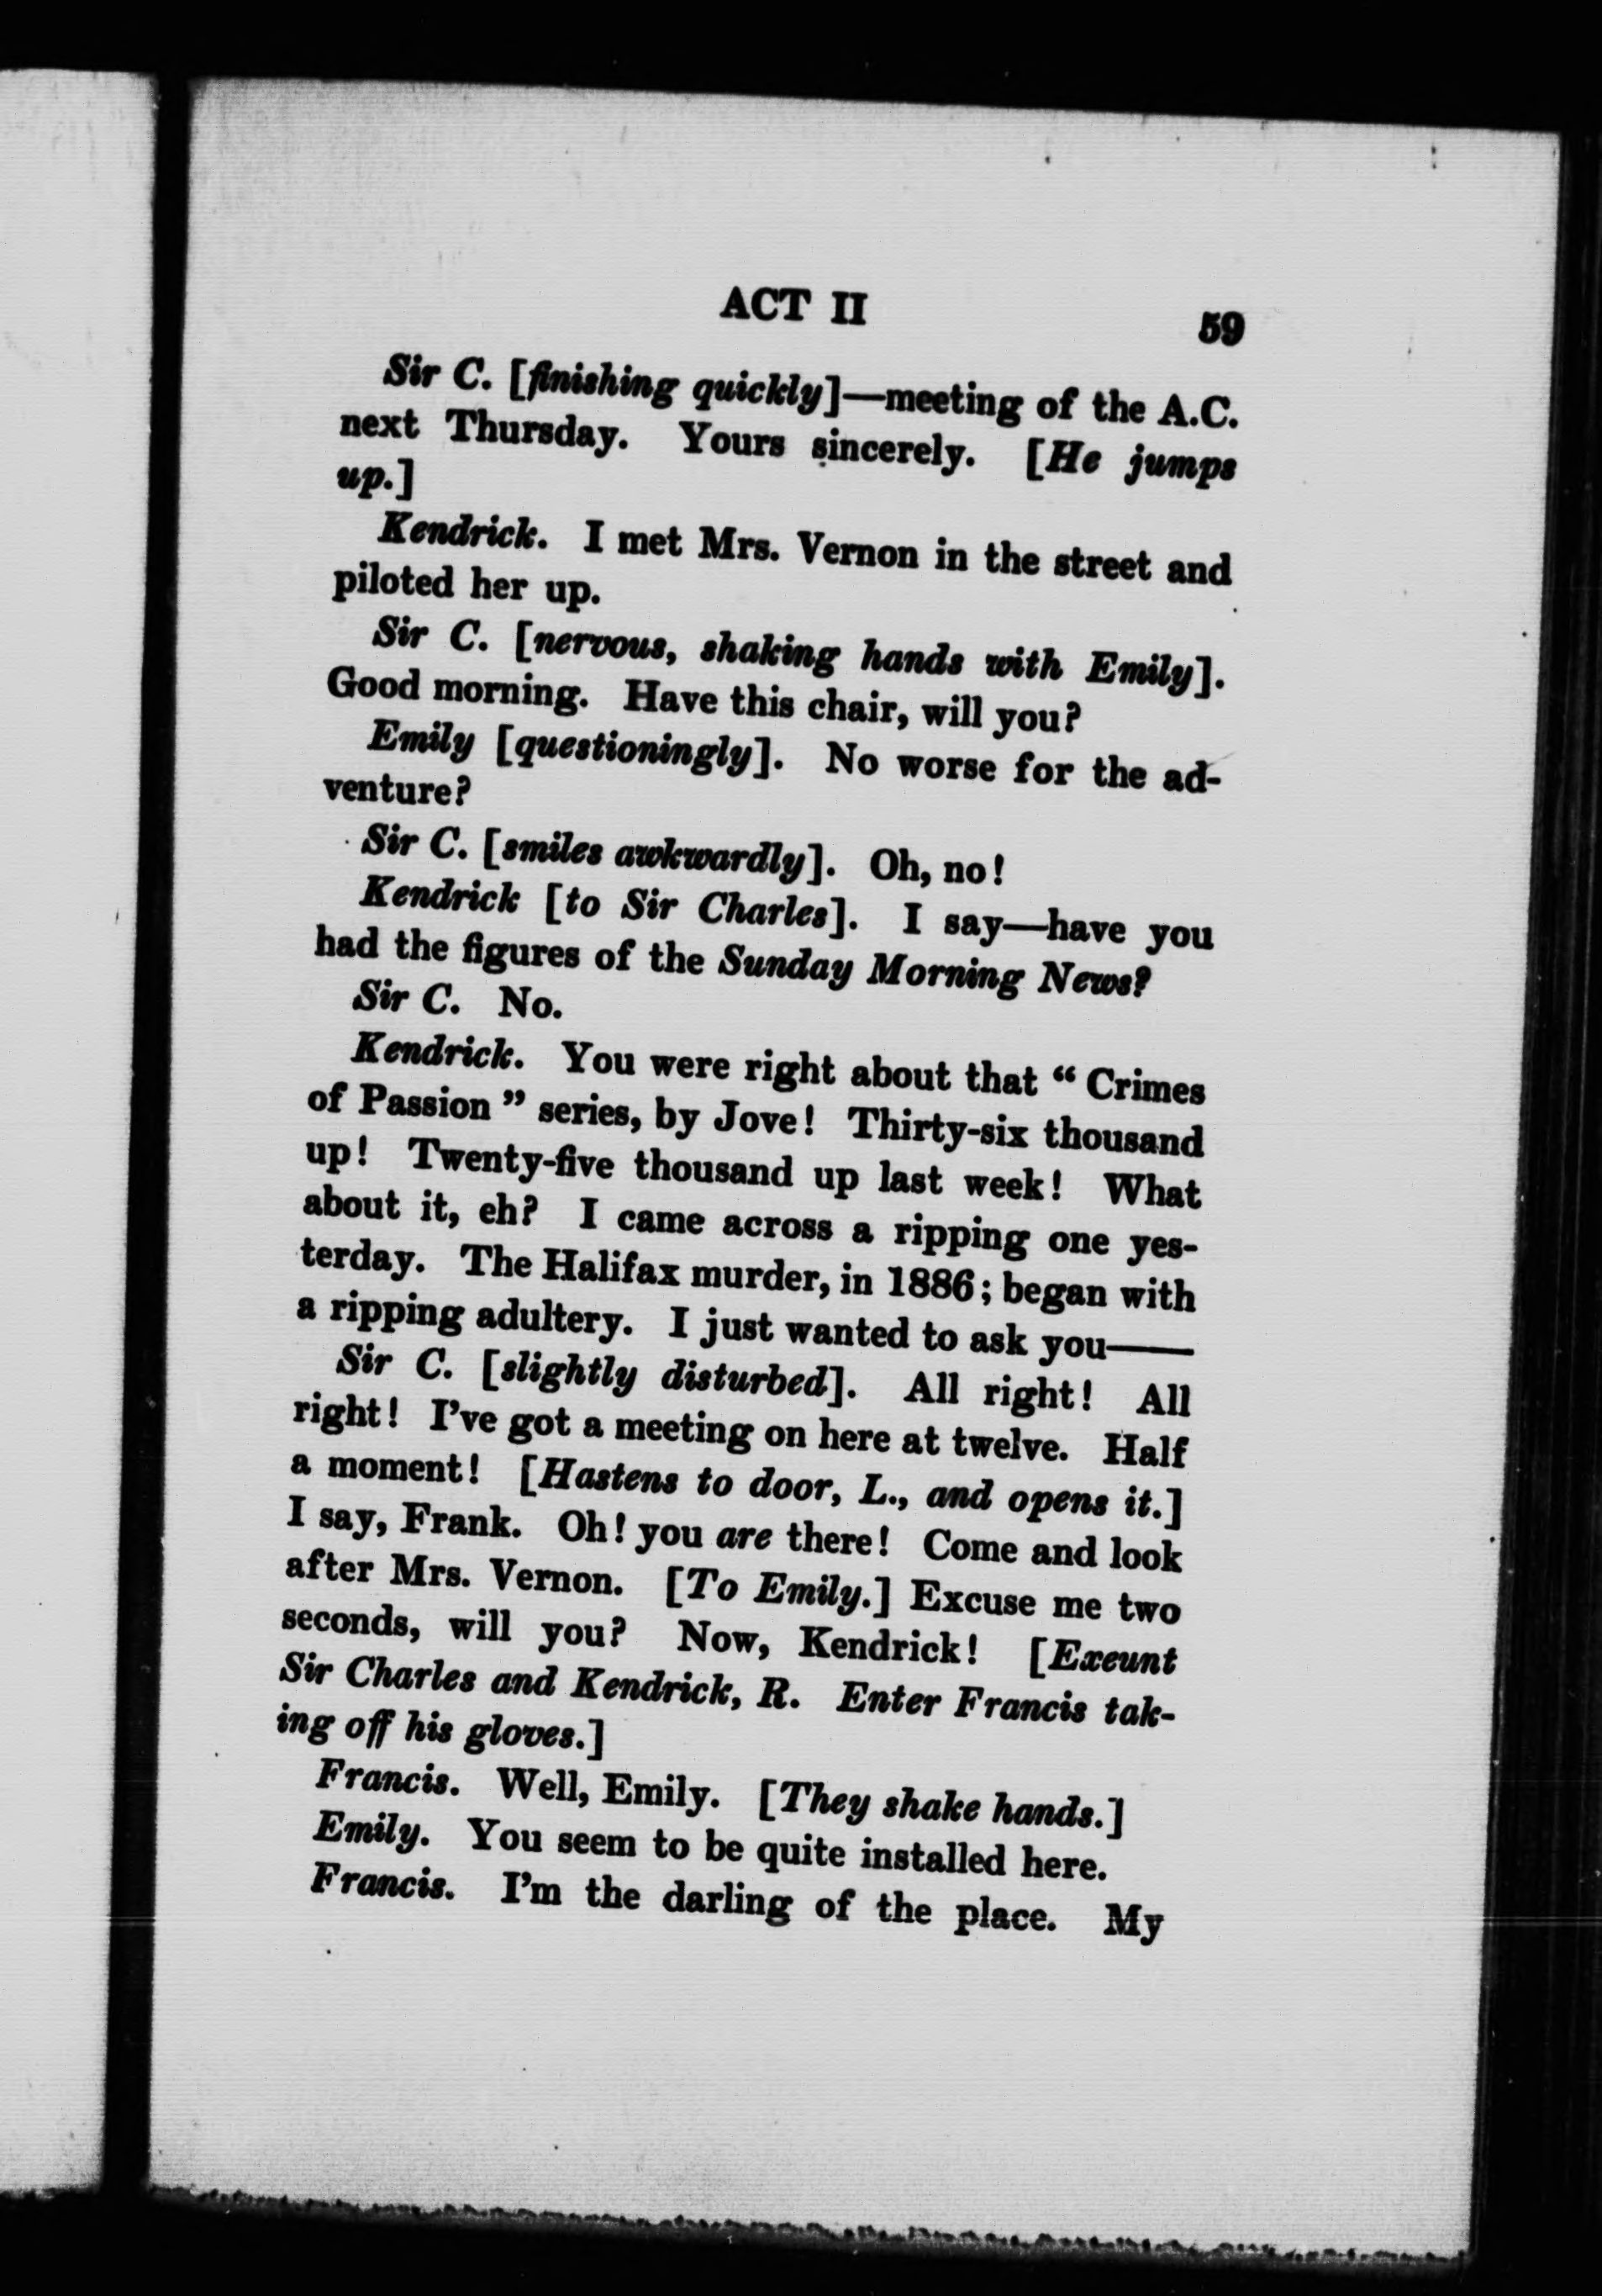 ACT II 59
Sir C. [finishing quickly]—meeting of the A.C.
next Thursday. Yours sincerely. [He jumps
up.]
Kendrick. I met Mrs. Vernon in the street and
piloted her up.
Sir C. [nervous, shaking hands with Emily].
Good morning. Have this chair, will you?
Emily [questioningly]. No worse for the ad-
venture?
Sir C. [smiles awkwardly]. Oh, no!
Kendrick [to Sir Charles]. I say—have you
had the figures of the Sunday Morning News?
Sir C. No.
Kendrick. You were right about that “ Crimes
of Passion ” series, by Jove! Thirty-six thousand
up! Twenty-five thousand up last week! What
about it, eh? I came across a ripping one yes-
terday. The Halifax murder, in 1886; began with
a ripping adultery. I just wanted to ask you——
Sir C. [slightly disturbed]. All right! All
right! I’ve got a meeting on here at twelve. Half
a moment! [Hastens to door, L., and opens it.]
I say, Frank. Oh! you are there! Come and look
after Mrs. Vernon. [To Emily.] Excuse me two
seconds, will you? Now, Kendrick! [Exeunt
Sir Charles and Kendrick, R. Enter Francis tak-
ing off his gloves.]
Francis. Well, Emily. [They shake hands.]
Emily. You seem to be quite installed here.
Francis. I’m the darling of the place. My